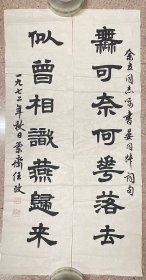 無可奈何華落去
余立同志属書晏同叔詞句
似曾相識燕歸来
一九七二年秋日蘭齋任政